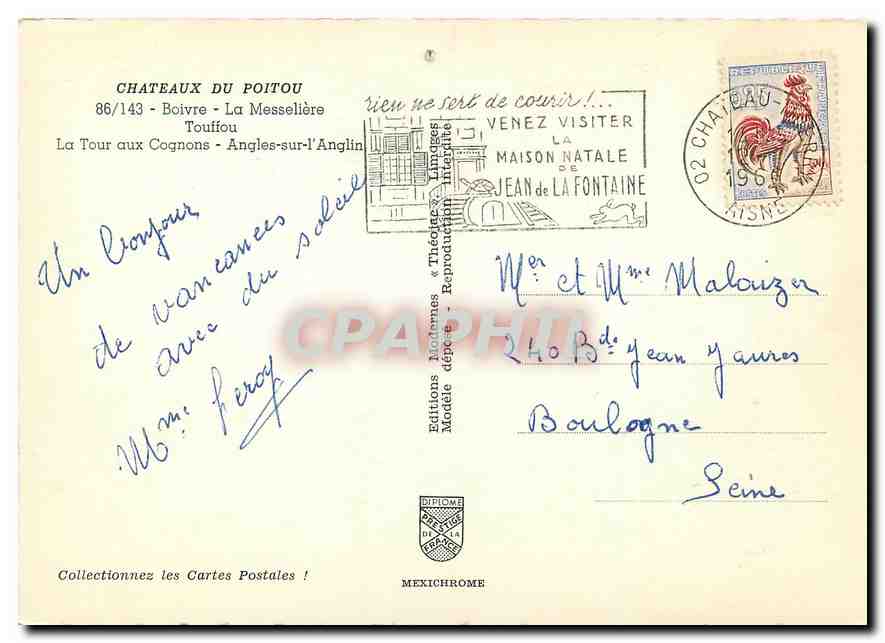 CHATEAUX DU POITOU
86/143 - Boivre - La Messelière
Touffou
La Tour aux Cognons - Angles-sur-l'Anglin
rien ne sert de courir !...
VENEZ VISITER
LA
MAISON NATALE
DE
JEAN de LA FONTAINE
02 CHATEAU-
196
AISNE
POSTES
Un bonjour
de vancances
avec du soleil
Mme Leroy
Editions Modernes « Théojac », Limoges
Modèle déposé - Reproduction interdite
CPAPHIL
Mer et Mme Malaizer
240 Bd. Jean Jaures
Boulogne
Seine
DIPLOME
PRESTIGE
DE LA
FRANCE
MEXICHROME
Collectionnez les Cartes Postales !